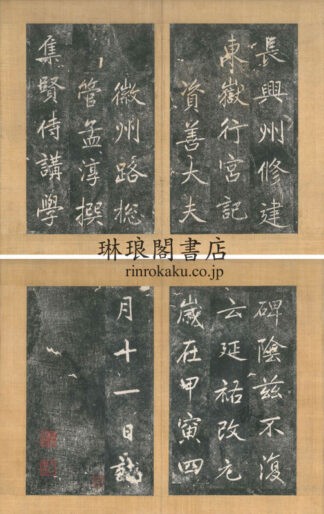 長興州修建
東嶽行宮記
資善大夫
徽州路揔
管孟淳撰
集賢侍講學
琳琅閣書店
rinrokaku.co.jp
碑陰茲不復
云延祐改元
歲在甲寅四
月十一日記